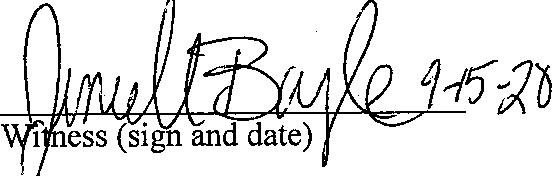 Bayle 9-15-20
Witness (sign and date)